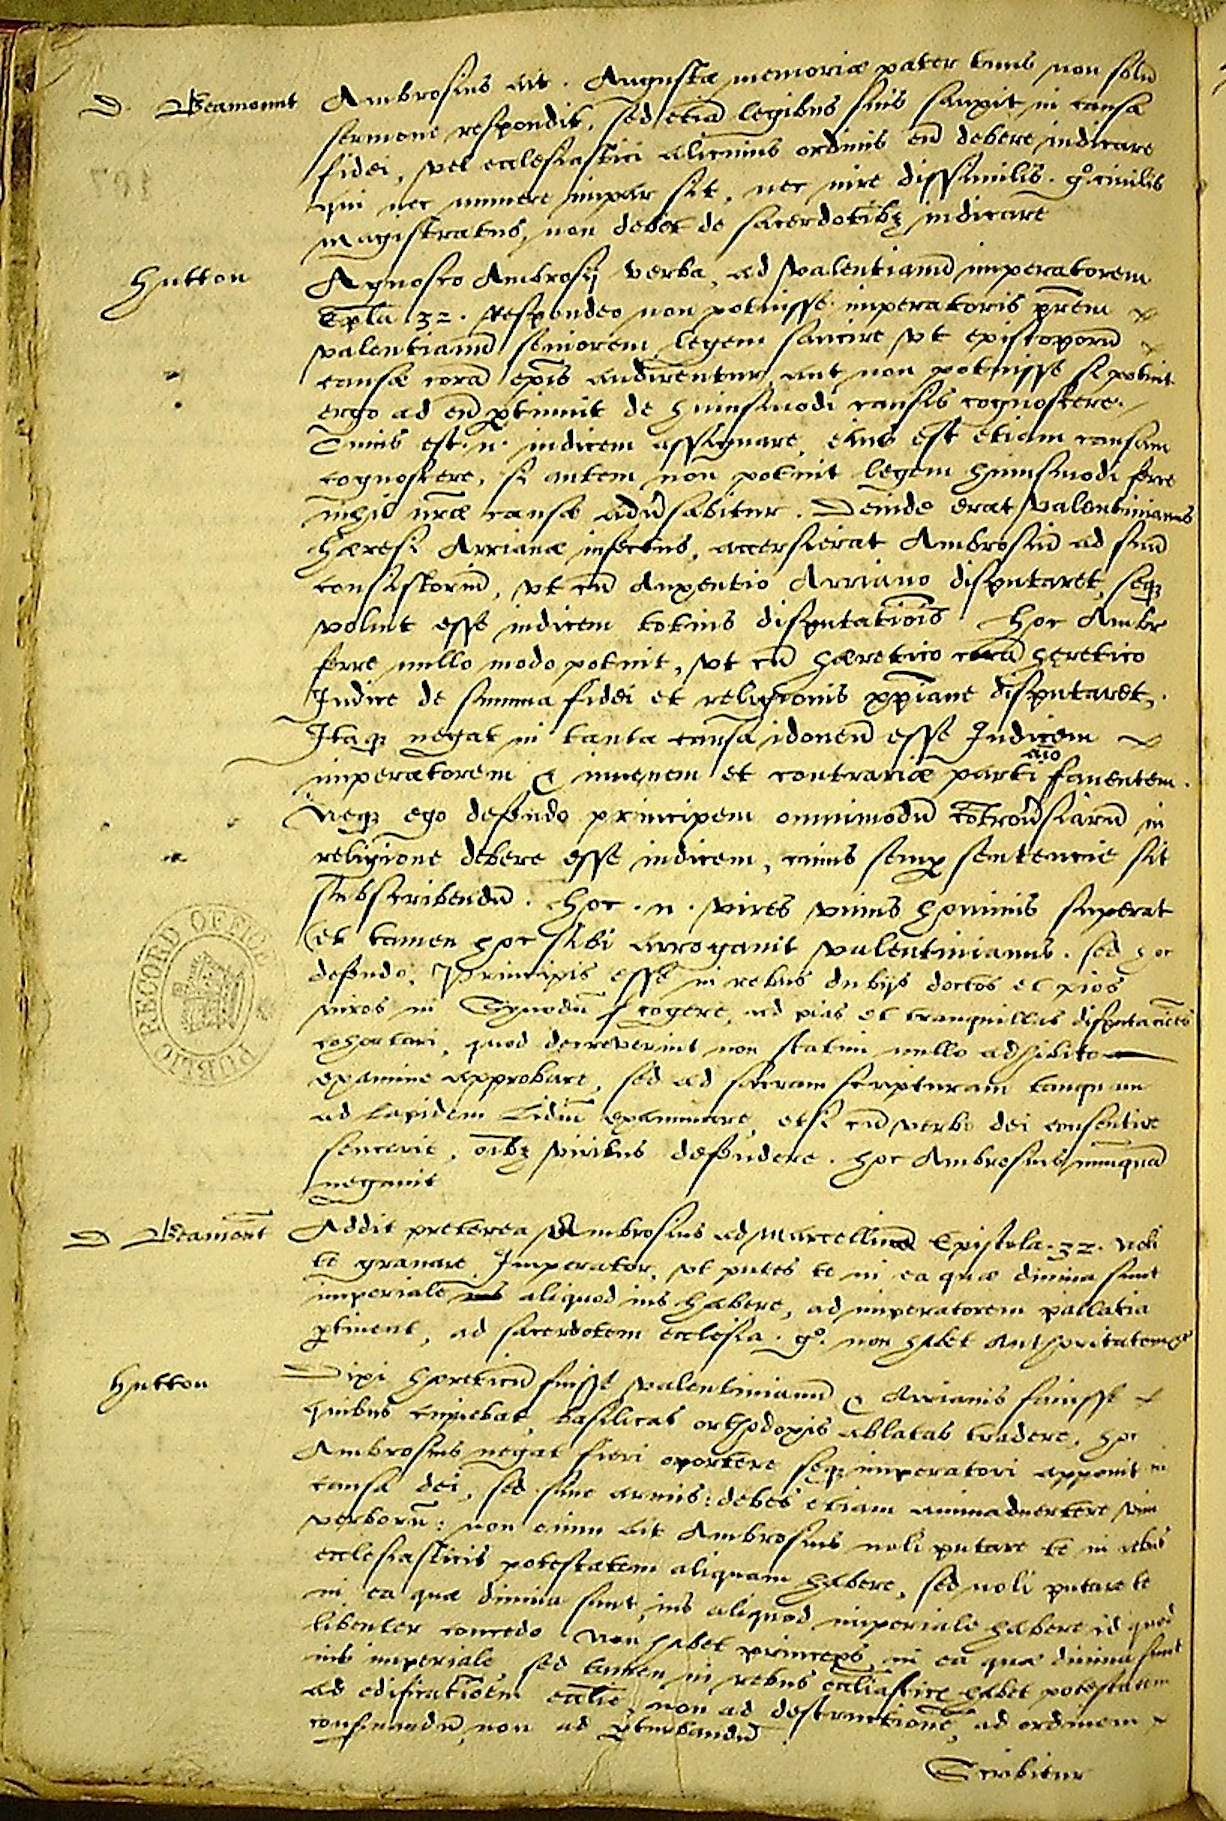 D. Beamount Ambrosius ait. Augustæ memoriæ pater tuus non solū
sermone respondit, sed etiā legibus suis sanxit, in causa
fidei, vel ecclesiastici alicuius ordinis eū debere iudicare
qui nec munere impar sit, nec iure dissimilis. gº. ciuilis
magistratus, non debet de sacerdotibꝫ iudicare
Hutton Agnosco Ambrosij verba, ad Valentianū imperatorem
Epl̄a 32. Respondeo non potuisse imperatoris pr̄em
valentianū seniorem legem sancire vt episcoporū
causæ corā ep̄is audirentur, aut non potuisse si potuit
ergo ad eū ꝑtinuit de huiusmodi causis cognoscere.
Cuius est. n. iudicem assignare, eius est etiam causam
cognoscere, si autem non potuit legem huiusmodi ferre
nihil vr̄æ causæ adūsabitur. Deinde erat Valentinianus
hæresi Arrianæ infectus, accersierat Ambrosiū ad suū
consistoriū, vt cū Auxentio Arriano disputaret, seqꝫ
voluit esse iudicem totius disputatiōis hoc Ambr
ferre nullo modo potuit, vt cū hæretico corā hęretico
Iudice de summa fidei et religionis xp̄iane disputaret.
Itaqꝫ negat in tanta causa idoneū esse Iudicem
imperatorem & iuuenem et contrariæ parti aīo fauentem.
Neqꝫ ego defendo principem omnimodū cōtroūsiarū in
religione debere esse iudicem, cuius semꝑ sententie sit
subscribendū. hoc .n. vires vnius hominis superat
et tamen hoc sibi arrogauit valentinianus. sed hoc
defendo, Principis esse in rebus dubijs doctos et pios
viros in Synodū cogere, ad pias et tranquillas disputac̄ōes
cohortari, quod decreverint non statim nullo adhibito
examine approbare, sed ad sacram scripturam tanquam
ad lapidem Lidiū examinare, et si cū verbo dei consentire
senserit, oībꝫ viribus defendere. hoc Ambrosius nunquā
negauit
D Beamōnt Addit preterea Ambrosius ad Marcellinā Epistola. 32. Noli
te grauare Imperator, vt putes te in ea quæ diuina sunt
imperiale aliquod ius habere, ad imperatorem pallatia
ꝑtinent, ad sacerdotem ecclesia. gº. non habet Authoritatem
Hutton Dixi hæreticū fuisse Valentinianū & Arrianis fauisse
quibus cupiebat basilicas orthodoxis ablatas tradere, hoc
Ambrosius negat fieri oportere seqꝫ imperatori apponit in
causa dei, sed sine armis: debes etiam animaduertere vim
verborū: non enim ait Ambrosius noli putare te in rebus
ecclesiasticis potestatem aliquam habere, sed noli putare te
in ea quæ diuina sunt, ius aliquod imperiale habere id quod
libenter concedo. Non habet princeps in ea quæ diuina sunt
ius imperiale sed tamen in rebus ecc̄liasticis habet potestatem
ad edificatiōem eccl̄ie, non ad destructionē, ad ordinem
confirmandū non ad ꝑturbandū.
Scribitur
PUBLIC RECORD OFFICE